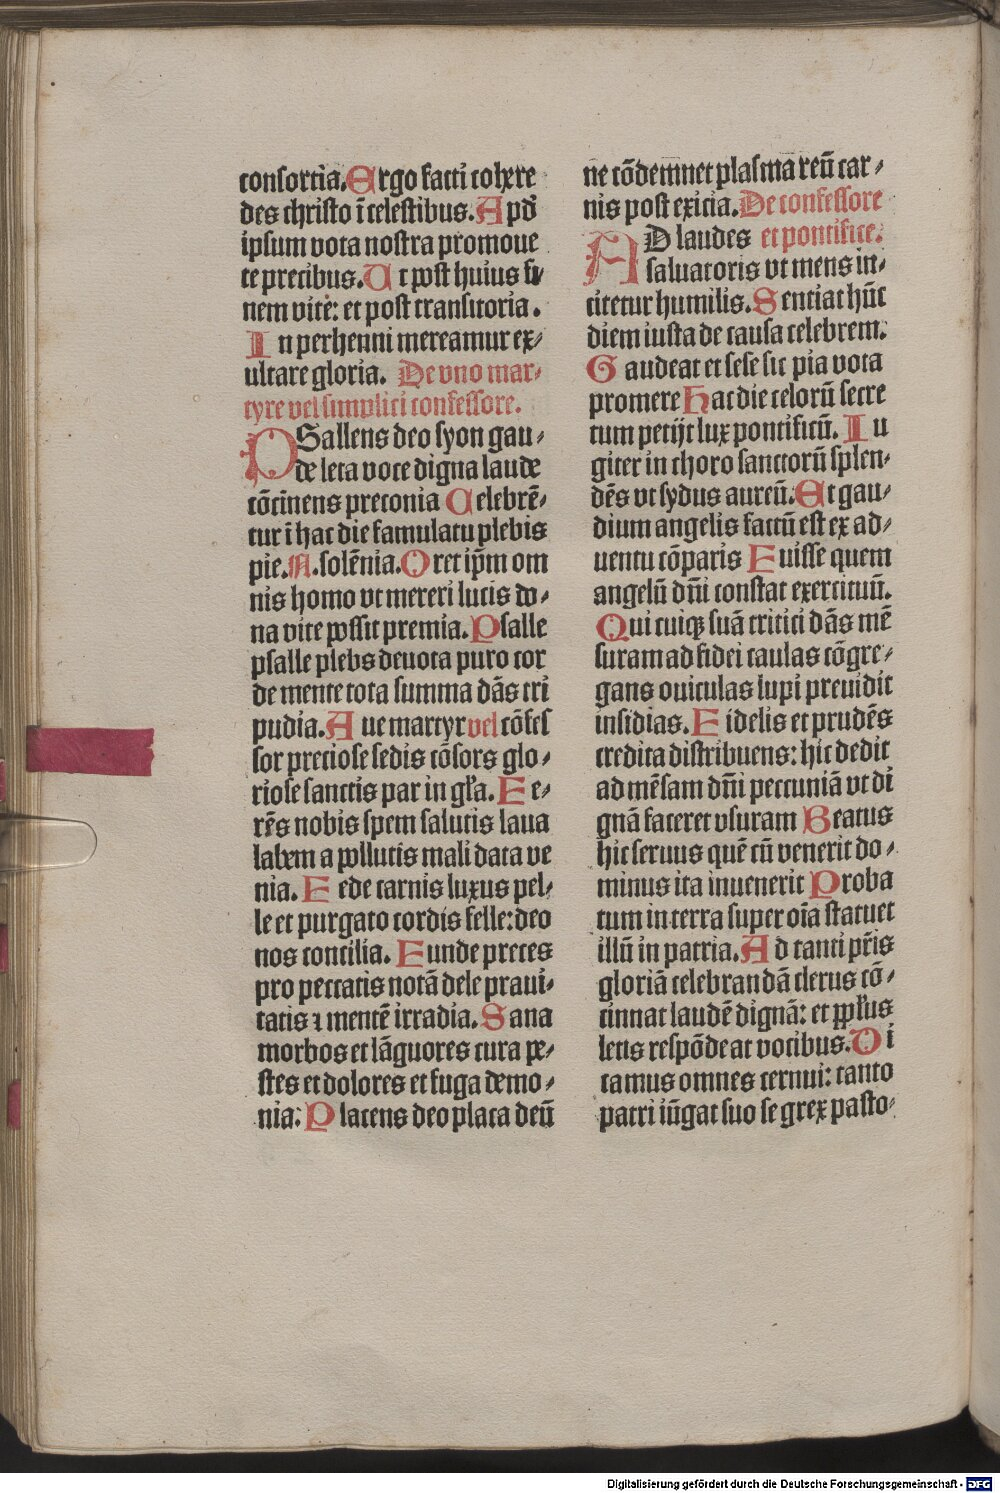 consortia. Ergo facti cohere
des christo ī celestibus. Apđ
ipsum vota nostra promoue
te precibus. Ut post huius fi
nem vite: et post transitoria.
In perhenni mereamur ex-
ultare gloria. De vno mar-
tyre vel simplici confessore.
PSallens deo syon gau-
de leta voce digna laude
cōcinens preconia Celebrē-
tur ī hac die famulatu plebis
pie. N. solēnia. Oret ip̄m om
nis homo vt mereri lucis do-
na vite possit premia. Psalle
psalle plebs deuota puro cor
de mente tota summa dās tri
pudia. Aue martyr vel cōfes
sor preciose sedis cōsors glo-
riose sanctis par in gła. Fe-
rēs nobis spem salutis laua
labem a pollutis mali data ve
nia. Fede carnis luxus pel-
le et purgato cordis felle: deo
nos concilia. Funde preces
pro peccatis notā dele praui-
tatis ⁊ mentē irradia. Sana
morbos et lāguores cura pe-
stes et dolores et fuga demo-
nia: Placens deo placa deū
ne cōdemnet plasma reū car-
nis post exicia. De confessore
AD laudes et pontifice.
saluatoris vt mens in-
citetur humilis. Sentiat hūc
diem iusta de causa celebrem.
Gaudeat et sese sic pia vota
promere Hac die celorū secre
tum petijt lux pontificū. Iu
giter in choro sanctorū splen-
dēs vt sydus aureū. Et gau-
dium angelis factū est ex ad-
uentu cōparis Fuisse quem
angelū dn̄i constat exercituū.
Qui cuiqꝫ suā critici dās mē
suram ad fidei caulas cōgre-
gans ouiculas lupi preuidit
insidias. Fidelis et prudēs
credita distribuens: hic dedit
ad mēsam dn̄i peccuniā vt di
gnā faceret vsuram Beatus
hic seruus quē cū venerit do-
minus ita inuenerit Proba
tum in terra super oīa statuet
illū in patria. Ad tanti pr̄is
gloriā celebrandā clerus cō-
cinnat laudē dignā: et ppłus
letis respōdeat vocibus. Di
camus omnes cernui: canto
patri iūgat suo se grex pasto-
Digitalisierung gefördert durch die Deutsche Forschungsgemeinschaft - DFG